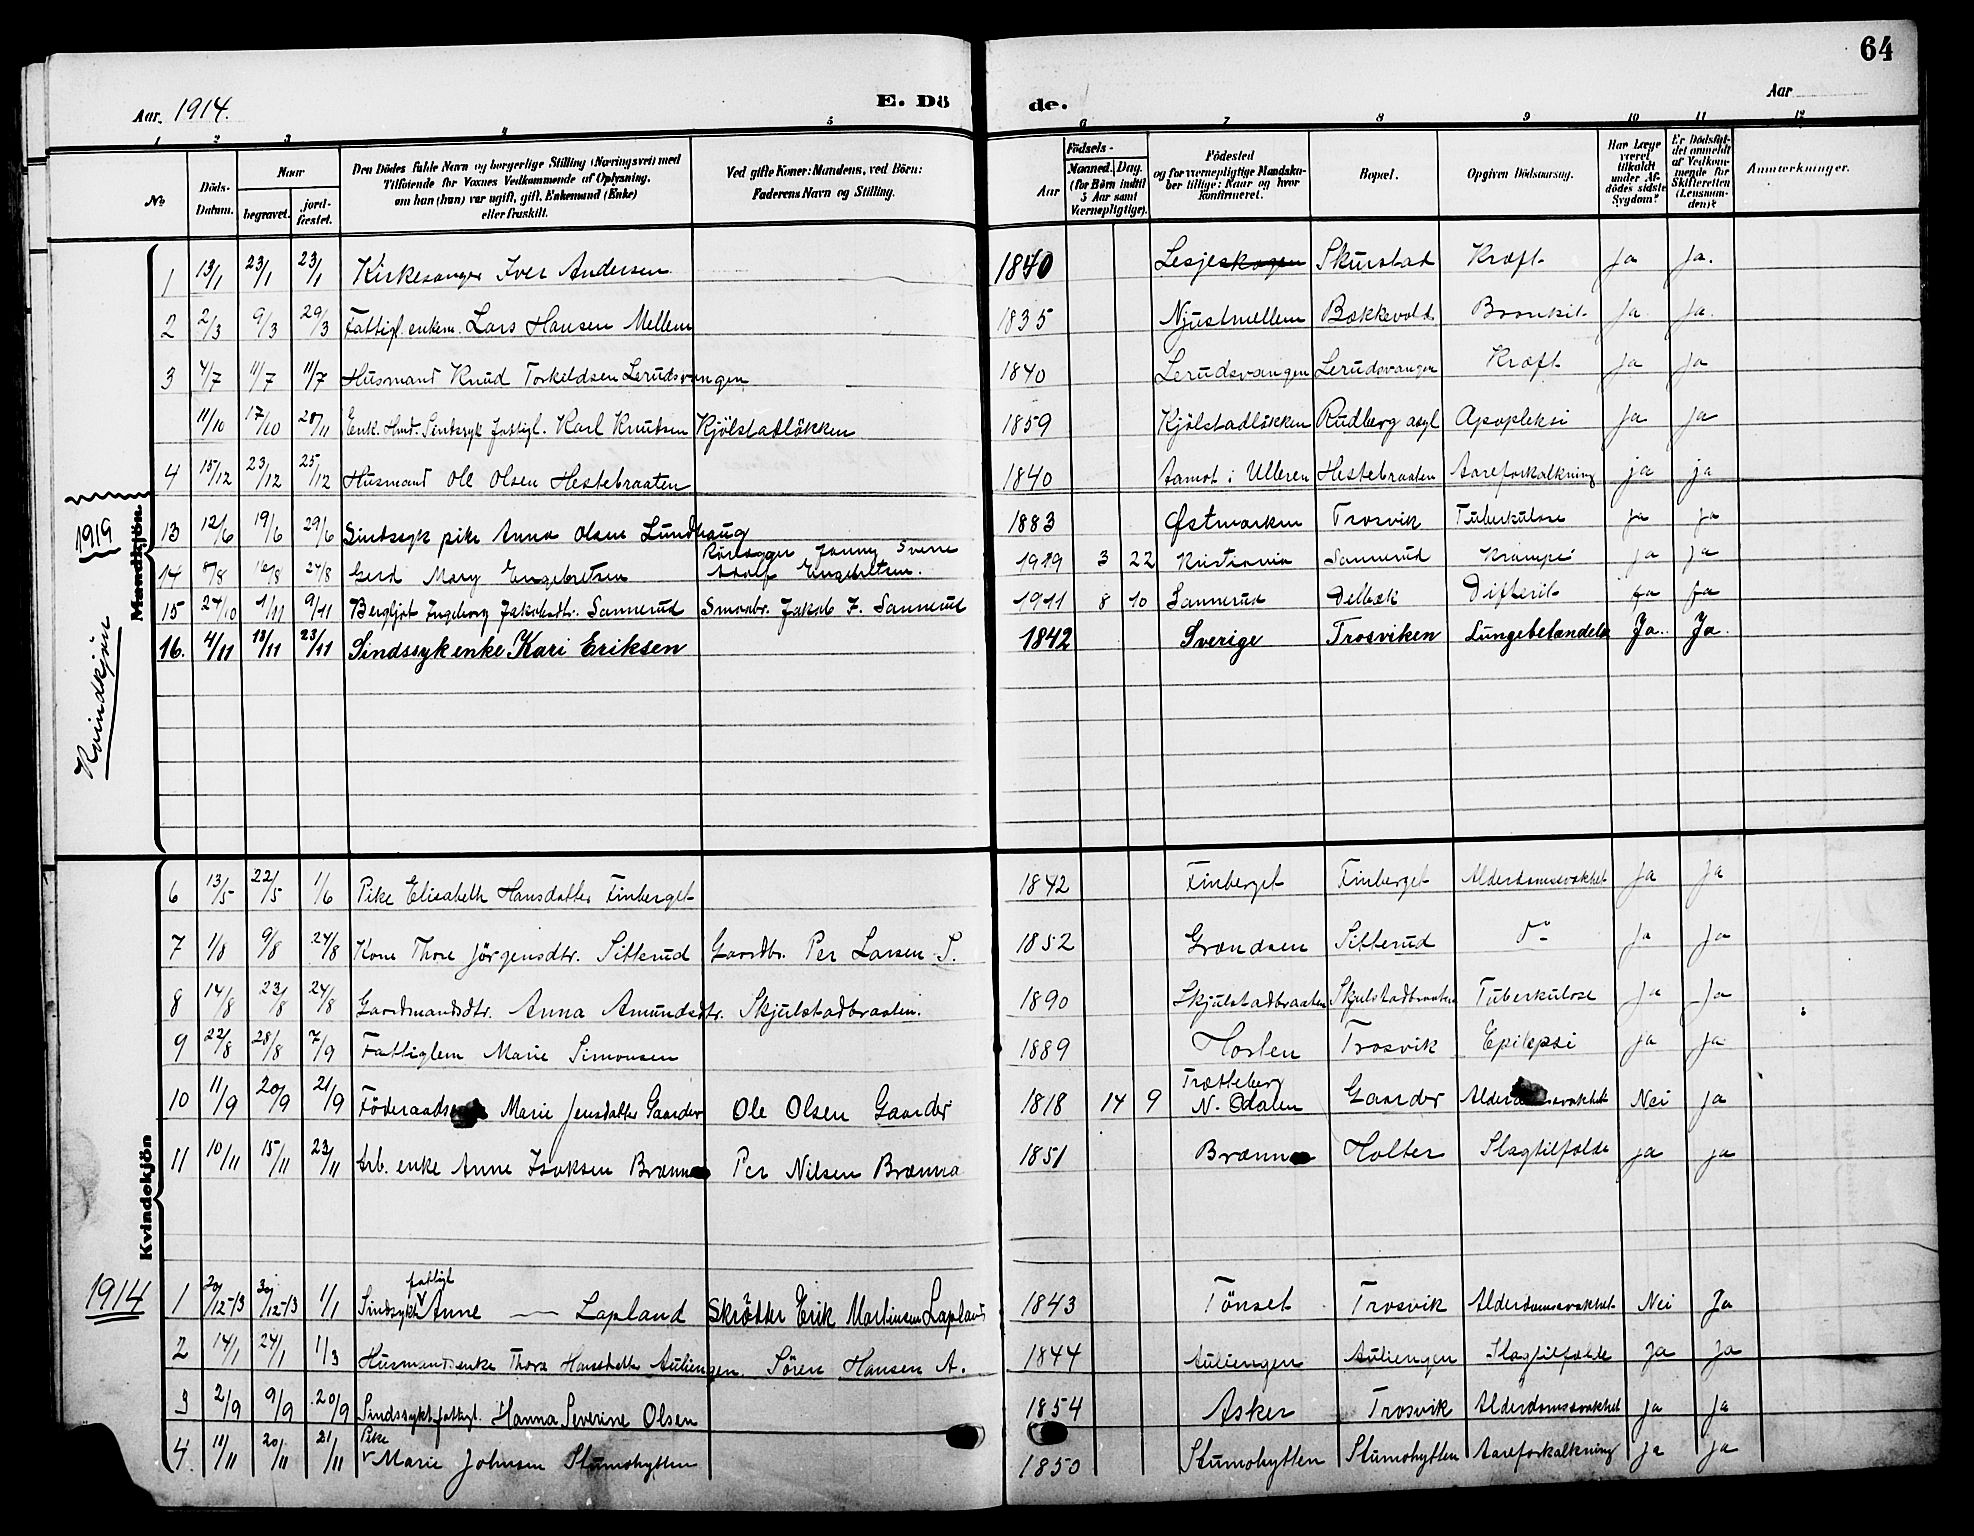 64
Aar. 1914. E. Dö de. Aar
1 2 3 4 5 6 7 8 9 10 11 12
No. Döds-Datum. Naar begravet. jord-fæstet. Den Dödes fulde Navn og borgerlige Stilling (Næringsvei) med Tilföiende for Voxnes Vedkommende af Oplysning, om han (hun) var ugift, gift, Enkemand (Enke) eller fraskilt. Ved gifte Koner: Mandens, ved Börn: Faderens Navn og Stilling. Födsels- Aar Maaned. Dag. (for Börn indtil 5 Aar samt Værnepligtige). Födested og for værnepligtige Mandskaber tillige: Naar og hvor konfirmeret. Bopæl. Opgiven Dödsaarsag. Har Læge været tilkaldt under Afdödes sidste Sygdom? Er Dödsfaldet anmeldt af Vedkommende for Skifteretten (Lensmanden)? Anmærkninger.
Mandkjön.
1 13/1 23/1 23/1 Kirkesanger Iver Andersen 1840 Lesjeskogen Skurstad Kræft Ja Ja.
2 2/3 9/3 29/3 Fattigl. enkem. Lars Hansen Mellem 1835 Njustmellem Bækkevold Bronkit Ja Ja.
3 4/7 11/7 11/7 Husmand Knud Torkeldsen Lerudsvangen 1840 Lerudsvangen Lerudsvangen Kræft Ja Ja
11/10 17/10 28/11 Enk. Sindssyk fattigl. Karl Knutsen Kjölstadlökken 1859 Kjölstadlökken Rudberg asyl Apopleksi Ja Ja
4 15/12 23/12 25/12 Husmand Ole Olsen Hestebraaten 1840 Aamot i Ulleren Hestebraaten Aareforkalkning ja ja
1919
Kvindkjön
13 12/6 19/6 29/6 Sindssyk pike Anna Olsen Lundhaug 1883 Østmarken Trosvik Tuberkulose ja ja
14 8/8 16/8 24/8 Gerd Mary Engebretsen Adolf Engebretsen. 1919 3 22 Kristiania Sannerud Krampe ja ja
15 24/10 1/11 9/11 Bergljot Ingeborg Jakobsdtr. Sannerud Smaabr. Jakob J. Sannerud 1911 8 10 Sannerud Delbæk Difterit ja ja
16. 4/11 13/11 23/11 Sindssyk enke Kari Eriksen 1842 Sverige Trosviken Lungebetændelse Ja.. Ja.
Kvindekjön
6 13/5 22/5 1/6 Pike Elisabeth Hansdatter Finberget 1842 Finberget Finberget Alderdomssvakhet Ja Ja
7 1/8 9/8 24/8 Kone Thore Jörgensdtr. Sitterud Gaardbr. Per Larsen S. 1852 Grændsen Sitterud do Ja Ja
8 14/8 23/8 24/8 Gaardmandsdtr. Anna Amundsdtr. Skjulstadbraaten. 1890 Skjulstadbraaten Skjulstadbraaten Tuberkulose Ja Ja
9 22/8 28/8 7/9 Fattiglem Marie Simonsen 1889 Horten Trosvik Epilepsi ja Ja
10 11/9 20/9 21/9 Föderaads Marie Jensdatter Gaarder Ole Olsen Gaarder 1818 14 9 Trætteberg N. Odalen Gaarder Alderdomssvakhet Nei Ja
11 10/11 15/11 23/11 Arb. enke Anne Isaksen Brænna Per Nilsen Brænna 1851 Brænna Holter Slagtilfælde ja ja
1914
1 20/12-13 30/12-13 1/1 Sindsykt fattigl Anne — Lapland Skrædder Erik Martinsen Lapland 1843 Tönset Trosvik Alderdomssvakhet Nei Ja
2 14/1 24/1 1/3 Husmandsenke Thora Hansdatter Auliengen. Sören Hansen A. 1844 Auliengen Auliengen Slagtilfælde Ja Ja
3 2/9 9/9 20/9 Sindssykt fattigl. Hanna Severine Olsen 1854 Asker Trosvik Alderdomssvakhet Ja Ja
4 11/11 20/11 21/11 Pike Marie Johnsen Stumohytten 1850 Stumohytten Stumohytten Aareforkalkning ja ja